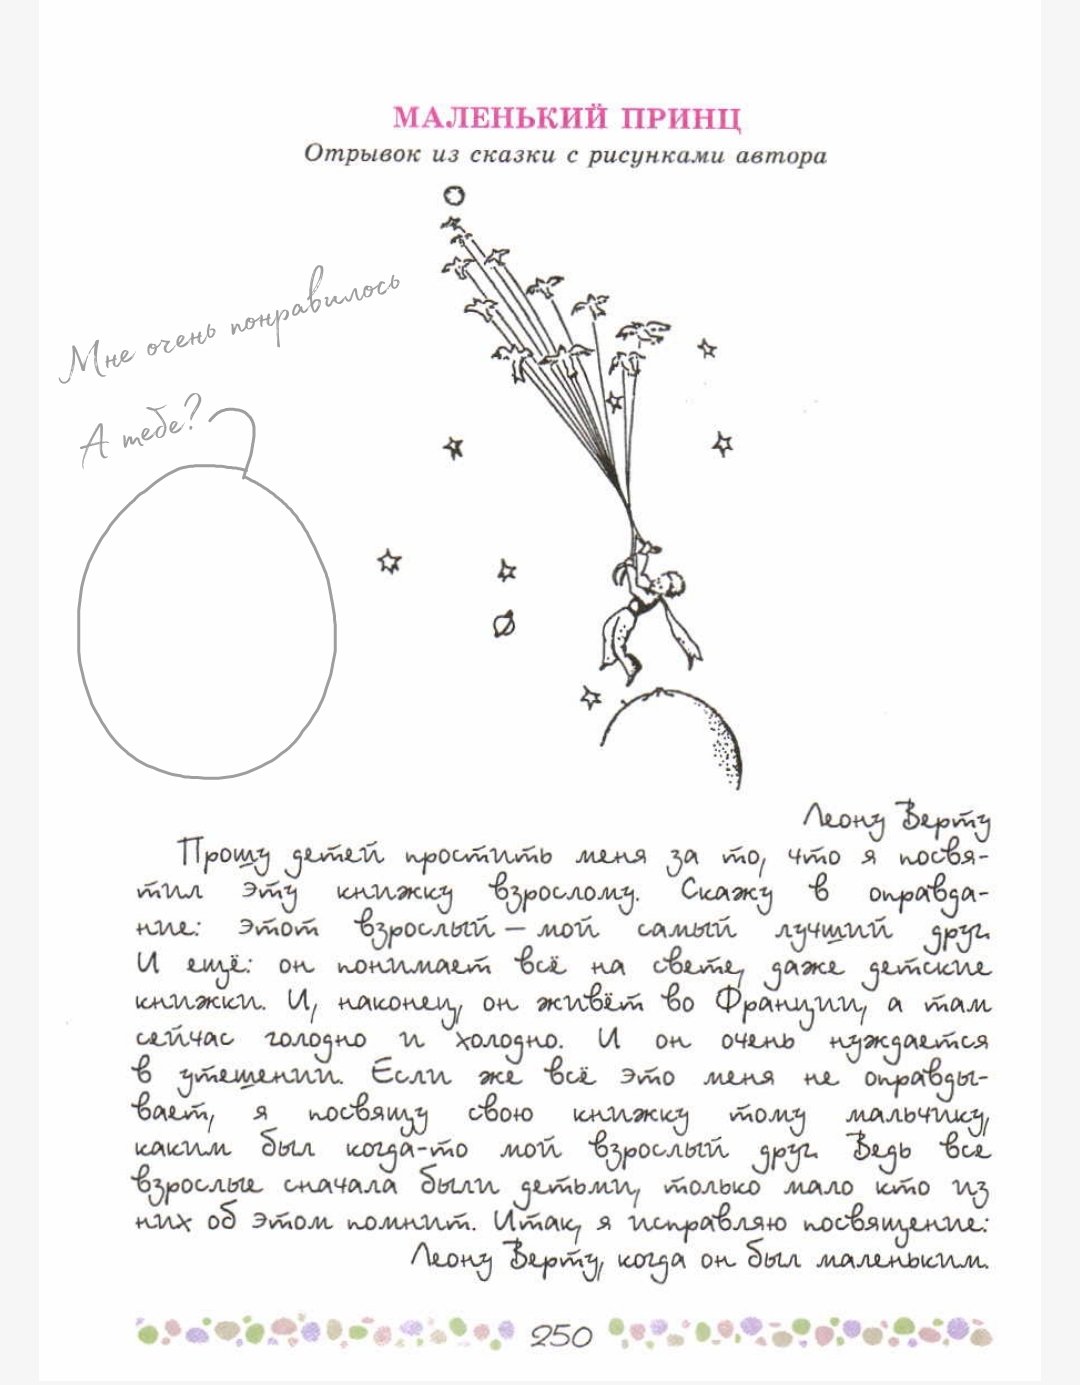 МАЛЕНЬКИЙ ПРИНЦ
Отрывок из сказки с рисунками автора
Мне очень понравилось
А тебе?
Леону Верту
Прошу детей простить меня за то, что я посвя-
тил эту книжку взрослому. Скажу в оправда-
ние: этот взрослый — мой самый лучший друг.
И ещё: он понимает всё на свете, даже детские
книжки. И, наконец, он живёт во Франции, а там
сейчас голодно и холодно. И он очень нуждается
в утешении. Если же всё это меня не оправды-
вает, я посвящу свою книжку тому мальчику,
каким был когда-то мой взрослый друг. Ведь все
взрослые сначала были детьми, только мало кто из
них об этом помнит. Итак, я исправляю посвящение:
Леону Верту, когда он был маленьким.
250